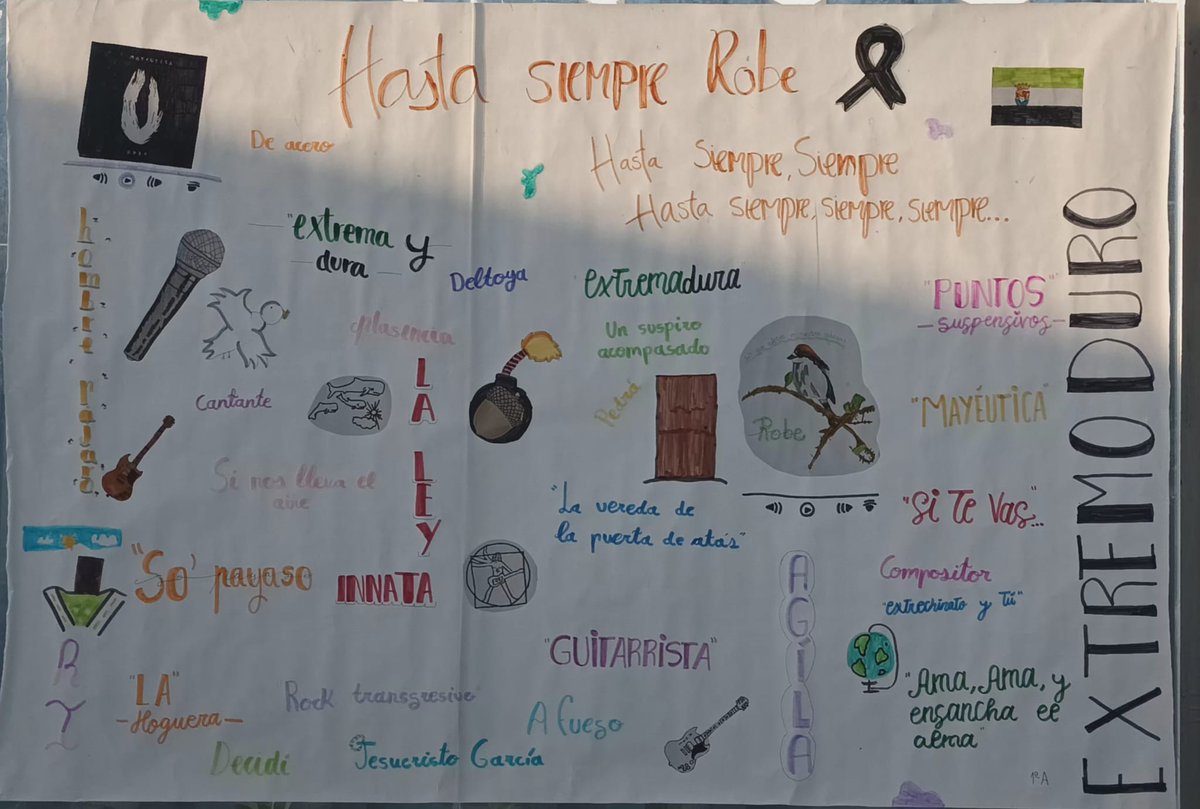 Hasta siempre Robe
De acero
Hasta siempre, siempre
Hasta siempre, siempre, siempre...
hombre pájaro
"extrema y
dura
Deltoya
extremadura"
"PUNTOS"
-suspensivos-
EXTREMODURO
plasencia
Un suspiro
acompasado
Cantante
LA LEY
INNATA
Pedrá
Robe
"MAYÉUTICA"
Si nos lleva el
aire
"La vereda de
la puerta de atás"
"Si Te Vas...
"So' payaso
AGÍLA
Compositor
"extrechinato y tú"
R
Y
"GUiTARRiSTA"
"LA"
-Hoguera-
Rock transgresivo
A fuego
"Ama, Ama, y
ensancha el
alma"
Decidí
Jesucristo García
1º A